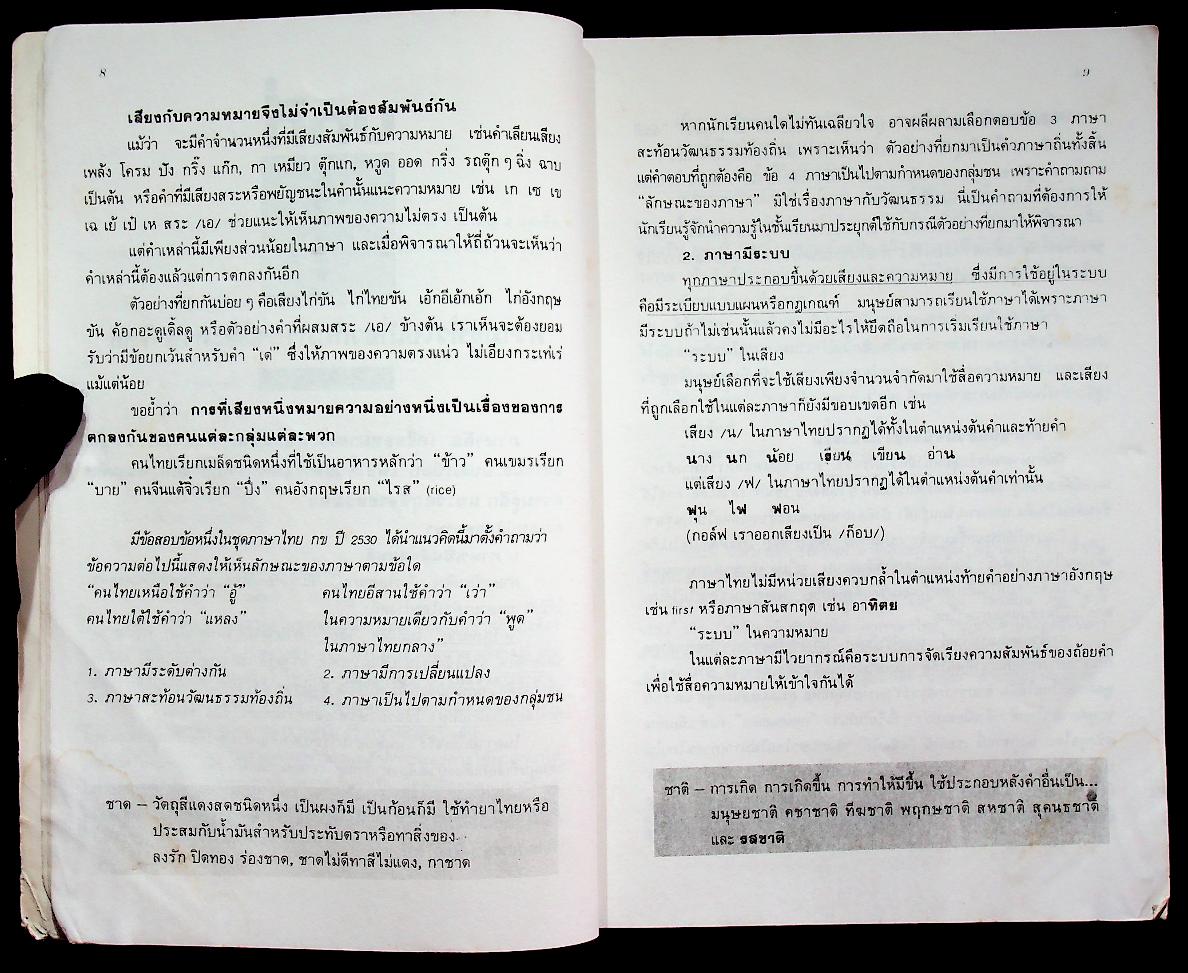 8
เสียงกับความหมายจึงไม่จำเป็นต้องสัมพันธ์กัน
แม้ว่า จะมีคำจำนวนหนึ่งที่มีเสียงสัมพันธ์กับความหมาย เช่นคำเลียนเสียง
เพล้ง โครม ปัง กริ๊ง แก๊ก, กา เหมียว ตุ๊กแก, หวูด ออด กริ่ง รถตุ๊ก ๆ ฉิ่ง ฉาบ
เป็นต้น หรือคำที่มีเสียงสระหรือพยัญชนะในคำนั้นแนะความหมาย เช่น เก เซ เข
เฉ เย้ เป๋ เห สระ /เอ/ ช่วยแนะให้เห็นภาพของความไม่ตรง เป็นต้น
แต่คำเหล่านี้มีเพียงส่วนน้อยในภาษา และเมื่อพิจารณาให้ถี่ถ้วนจะเห็นว่า
คำเหล่านี้ต้องแล้วแต่การตกลงกันอีก
ตัวอย่างที่ยกกันบ่อย ๆ คือเสียงไก่ขัน ไก่ไทยขัน เอ้กอีเอ้กเอ้ก ไก่อังกฤษ
ขัน ค้อกอะดูเดิ้ลดู หรือตัวอย่างคำที่ผสมสระ /เอ/ ข้างต้น เราเห็นจะต้องยอม
รับว่ามีข้อยกเว้นสำหรับคำ “เด่” ซึ่งให้ภาพของความตรงแน่ว ไม่เอียงกระเท่เร่
แม้แต่น้อย
ขอย้ำว่า การที่เสียงหนึ่งหมายความอย่างหนึ่งเป็นเรื่องของการ
ตกลงกันของคนแต่ละกลุ่มแต่ละพวก
คนไทยเรียกเมล็ดชนิดหนึ่งที่ใช้เป็นอาหารหลักว่า “ข้าว” คนเขมรเรียก
“บาย” คนจีนแต้จิ๋วเรียก “ปึ่ง” คนอังกฤษเรียก “ไรส” (rice)
มีข้อสอบข้อหนึ่งในชุดภาษาไทย กข ปี 2530 ได้นำแนวคิดนี้มาตั้งคำถามว่า
ข้อความต่อไปนี้แสดงให้เห็นลักษณะของภาษาตามข้อใด
“คนไทยเหนือใช้คำว่า “อู้” คนไทยอีสานใช้คำว่า “เว่า”
คนไทยใต้ใช้คำว่า “แหลง” ในความหมายเดียวกับคำว่า “พูด”
ในภาษาไทยกลาง”
1. ภาษามีระดับต่างกัน 2. ภาษามีการเปลี่ยนแปลง
3. ภาษาสะท้อนวัฒนธรรมท้องถิ่น 4. ภาษาเป็นไปตามกำหนดของกลุ่มชน
ชาด – วัตถุสีแดงสดชนิดหนึ่ง เป็นผงก็มี เป็นก้อนก็มี ใช้ทำยาไทยหรือ
ประสมกับน้ำมันสำหรับประทับตราหรือทาสิ่งของ
ลงรัก ปิดทอง ร่องชาด, ชาดไม่ดีทาสีไม่แดง, กาชาด
9
หากนักเรียนคนใดไม่ทันเฉลียวใจ อาจผลีผลามเลือกตอบข้อ 3 ภาษา
สะท้อนวัฒนธรรมท้องถิ่น เพราะเห็นว่า ตัวอย่างที่ยกมาเป็นคำภาษาถิ่นทั้งสิ้น
แต่คำตอบที่ถูกต้องคือ ข้อ 4 ภาษาเป็นไปตามกำหนดของกลุ่มชน เพราะคำถามถาม
“ลักษณะของภาษา” มิใช่เรื่องภาษากับวัฒนธรรม นี่เป็นคำถามที่ต้องการให้
นักเรียนรู้จักนำความรู้ในชั้นเรียนมาประยุกต์ใช้กับกรณีตัวอย่างที่ยกมาให้พิจารณา
2. ภาษามีระบบ
ทุกภาษาประกอบขึ้นด้วยเสียงและความหมาย ซึ่งมีการใช้อยู่ในระบบ
คือมีระเบียบแบบแผนหรือกฎเกณฑ์ มนุษย์สามารถเรียนใช้ภาษาได้เพราะภาษา
มีระบบถ้าไม่เช่นนั้นแล้วคงไม่มีอะไรให้ยึดถือในการเริ่มเรียนใช้ภาษา
“ระบบ” ในเสียง
มนุษย์เลือกที่จะใช้เสียงเพียงจำนวนจำกัดมาใช้สื่อความหมาย และเสียง
ที่ถูกเลือกใช้ในแต่ละภาษาก็ยังมีขอบเขตอีก เช่น
เสียง /น/ ในภาษาไทยปรากฏได้ทั้งในตำแหน่งต้นคำและท้ายคำ
นาง นก น้อย เรียน เขียน อ่าน
แต่เสียง /ฟ/ ในภาษาไทยปรากฏได้ในตำแหน่งต้นคำเท่านั้น
ฟุน ไฟ ฟอน
(กอล์ฟ เราออกเสียงเป็น /ก็อบ/)
ภาษาไทยไม่มีหน่วยเสียงควบกล้ำในตำแหน่งท้ายคำอย่างภาษาอังกฤษ
เช่น first หรือภาษาสันสกฤต เช่น อาทิตย
“ระบบ” ในความหมาย
ในแต่ละภาษามีไวยากรณ์คือระบบการจัดเรียงความสัมพันธ์ของถ้อยคำ
เพื่อใช้สื่อความหมายให้เข้าใจกันได้
ชาติ – การเกิด การเกิดขึ้น การทำให้มีขึ้น ใช้ประกอบหลังคำอื่นเป็น...
มนุษยชาติ คชาชาติ ทีฆชาติ พฤกษชาติ สหชาติ สุคนธชาติ
และ รสชาติ